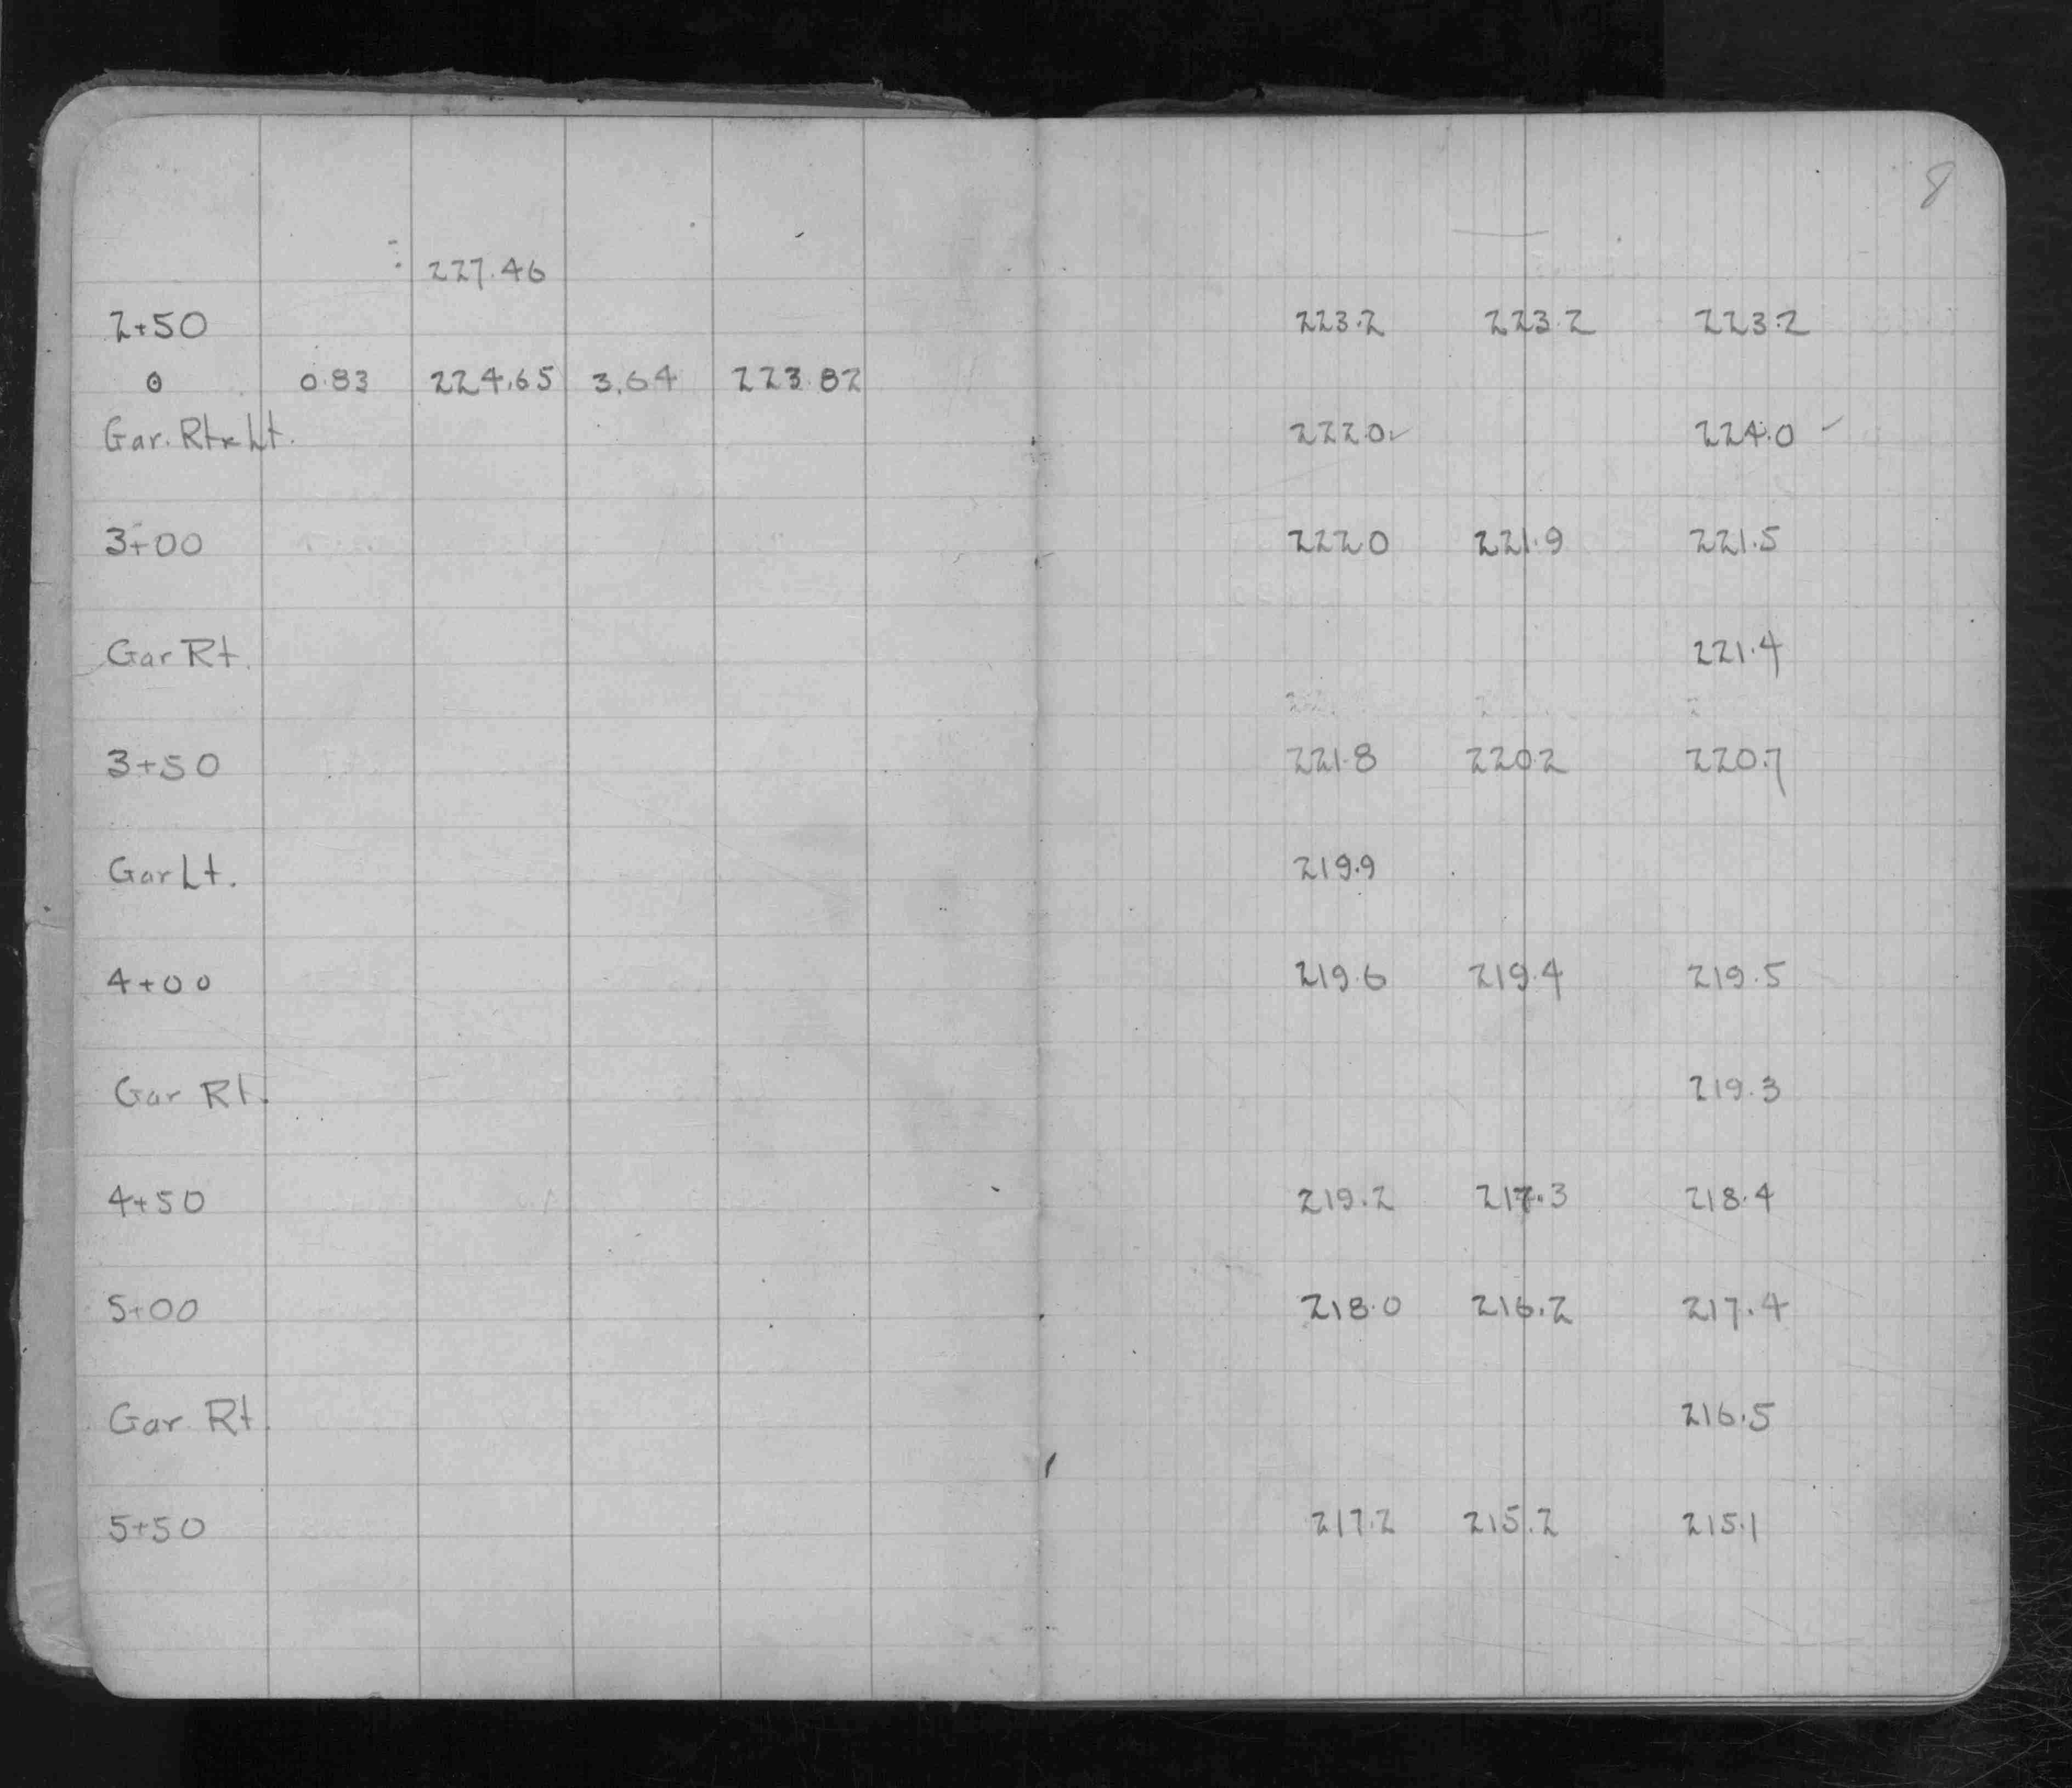 8
227.46
2+50 223.2 223.2 223.2
⊙ 0.83 224.65 3.64 223.82
Gar. Rt & Lt. 222.0 224.0
3+00 222.0 221.9 221.5
Gar Rt. 221.4
3+50 221.8 220.2 220.7
Gar Lt. 219.9
4+00 219.6 219.4 219.5
Gar Rt. 219.3
4+50 219.2 217.3 218.4
5+00 218.0 216.2 217.4
Gar Rt. 216.5
5+50 217.2 215.2 215.1